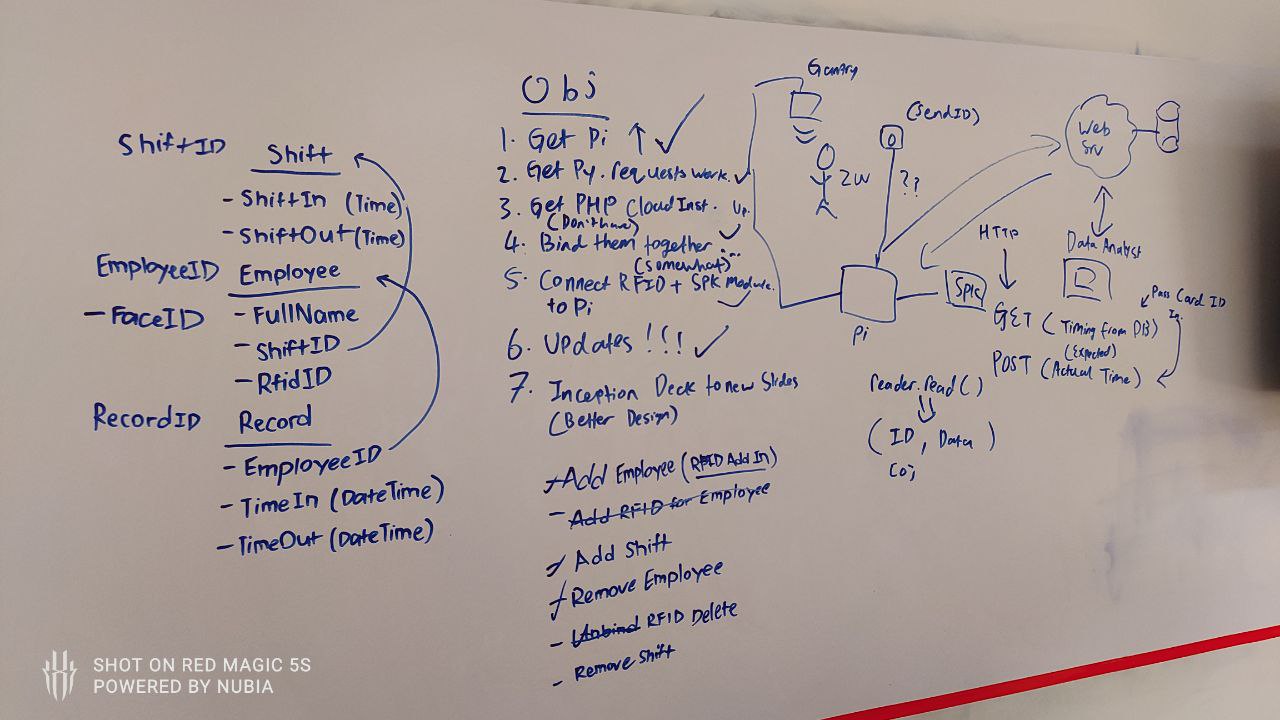 ShiftID
Shift
- ShiftIn (Time)
- ShiftOut (Time)
EmployeeID
Employee
- FaceID
- FullName
- ShiftID
- RfidID
RecordID
Record
- EmployeeID
- TimeIn (DateTime)
- TimeOut (DateTime)
Obj
1. Get Pi ↑ ✓
2. Get Py. requests work. ✓
3. Get PHP Cloud Inst. Up.
(Don't have)
4. Bind them together ... ✓
(somewhat)
5. Connect RFID + SPK Module.
to Pi ✓
6. UPdates !!! ✓
7. Inception Deck to new Slides
(Better Design)
Add Employee (RFID Add In)
- Add RFID for Employee
Add Shift
Remove Employee
- Unbind RFID Delete
- Remove Shift
Gantry
2W
(SendID)
??
Pi
SPK
Web
Srv
Data Analyst
HTTP
GET (Timing from DB)
(Expected)
POST (Actual Time)
Pass Card ID
In.
reader.read()
(ID, Data)